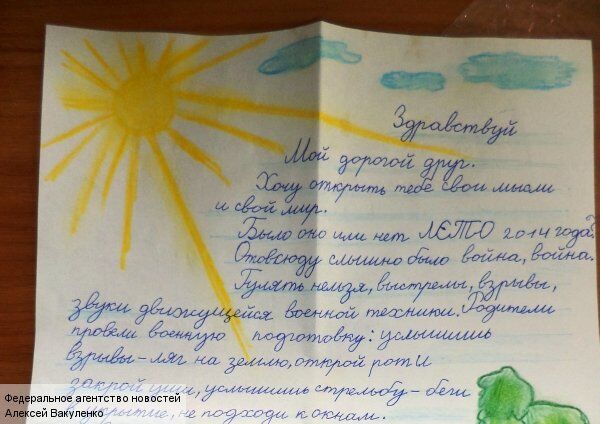 Здравствуй
Мой дорогой друг.
Хочу открыть тебе свои мысли
и свой мир.
Было оно или нет ЛЕТО 2014 года?
Отовсюду слышно было война, война.
Гулять нельзя, выстрелы, взрывы,
звуки движущейся военной техники. Родители
провели военную подготовку: услышишь
взрывы-ляг на землю, открой рот и
закрой уши, услышишь стрельбу-беги
в укрытие, не подходи к окнам.
Федеральное агентство новостей
Алексей Вакуленко